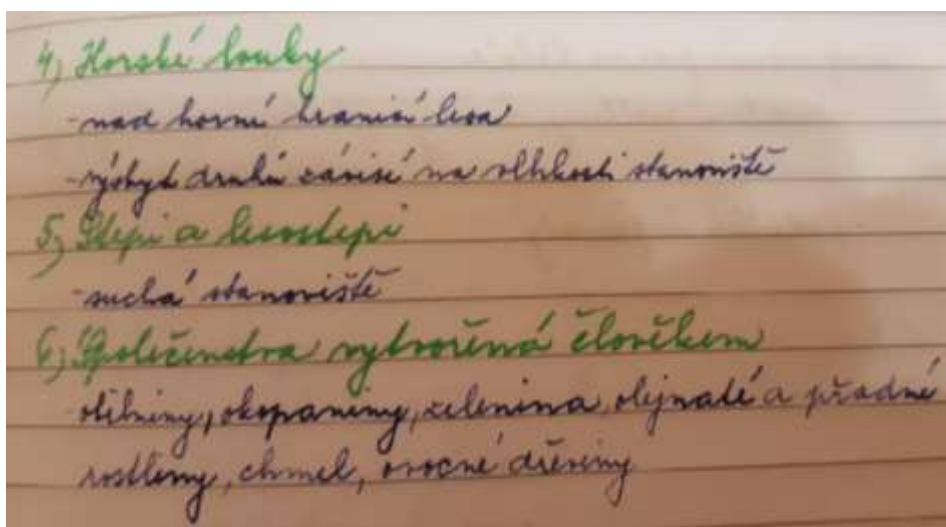 4, Horské louky
-nad horní hranicí lesa
-výskyt druhů závisí na vlhkosti stanoviště
5, Stepi a lesostepi
-suchá stanoviště
6, Společenstva vytvořená člověkem
-obilniny, okopaniny, zelenina, olejnaté a přadné
rostliny, chmel, ovocné dřeviny